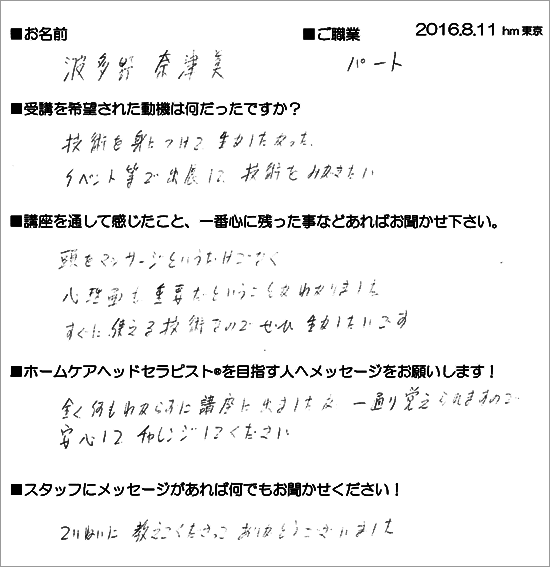 2016.8.11 hm東京
■お名前 ■ご職業
波多野 奈津美 パート
■受講を希望された動機は何だったですか？
技術を身につけて 生かしたかった
イベント等で出展して 技術をみがきたい
■講座を通して感じたこと、一番心に残った事などあればお聞かせ下さい。
頭をマッサージというだけでなく
心理面も重要だということがわかりました
すぐに使える技術なので ぜひ 生かしたいです
■ホームケアヘッドセラピスト®を目指す人へメッセージをお願いします！
全く何もわからずに講座に出ましたが 一通り覚えられますので
安心して チャレンジしてください
■スタッフにメッセージがあれば何でもお聞かせください！
ていねいに 教えてくださって ありがとうございました